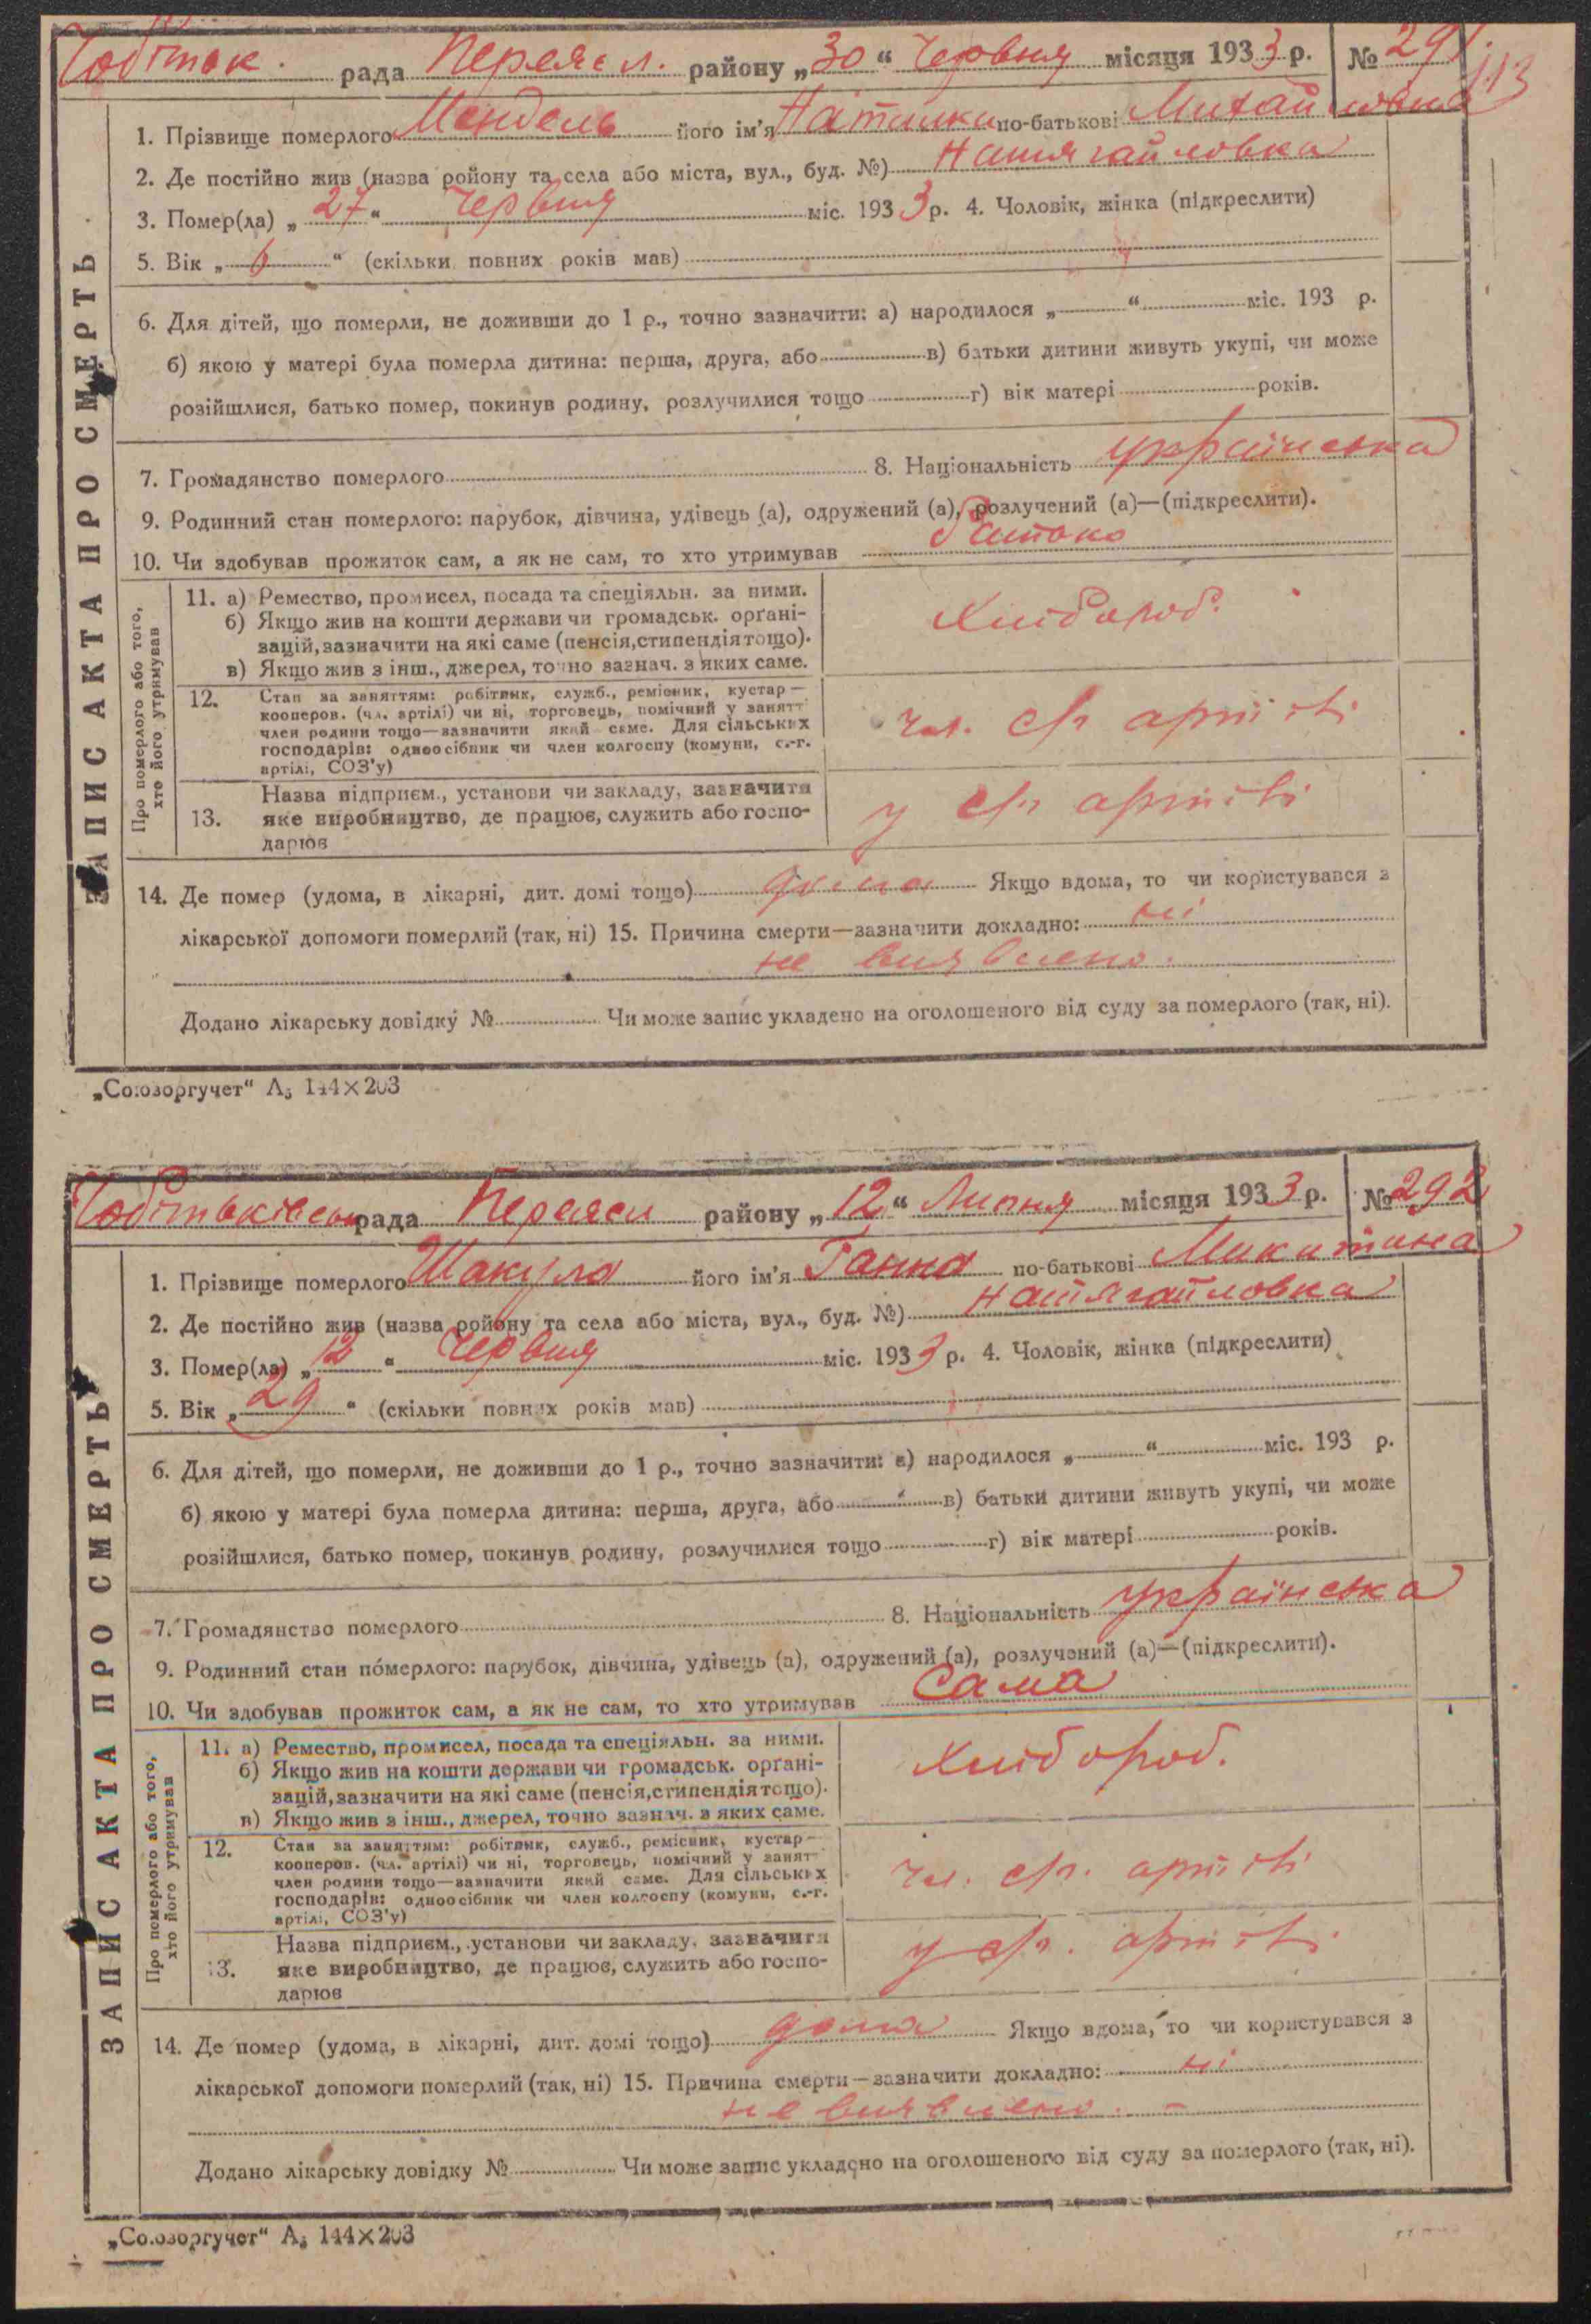 рада Переясл. району „30“ Червня місяця 1933 р. № 291
113
1. Прізвище померлого Мендель його ім'я по-батькові Михайловна
2. Де постійно жив (назва ройону та села або міста, вул., буд. №) Натягайловка
3. Помер(ла) „27“ Червня міс. 1933 р. 4. Чоловік, жінка (підкреслити)
5. Вік „6“ (скільки повних років мав)
6. Для дітей, що померли, не доживши до 1 р., точно зазначити: а) народилося „ “ міс. 193 р.
б) якою у матері була померла дитина: перша, друга, або в) батьки дитини живуть укупі, чи може
розійшлися, батько помер, покинув родину, розлучилися тощо г) вік матері років.
7. Громадянство померлого 8. Національність українська
9. Родинний стан померлого: парубок, дівчина, удівець (а), одружений (а), розлучений (а)—(підкреслити).
10. Чи здобував прожиток сам, а як не сам, то хто утримував
ЗАПИС АКТА ПРО СМЕРТЬ
Про померлого або того,
хто його утримував
11. а) Ремество, промисел, посада та спеціяльн. за ними.
б) Якщо жив на кошти держави чи громадськ. орґані-
зацій, зазначити на які саме (пенсія, стипендія тощо).
в) Якщо жив з інш., джерел, точно зазнач. з яких саме.
Хлібороб.
12. Стан за заняттям: робітник, служб., ремісник, кустар—
кооперов. (чл. артілі) чи ні, торговець, помічний у занятт
член родини тощо—зазначити який саме. Для сільських
господарів: одноосібник чи член колгоспу (комуни, с.-г.
артілі, СОЗ'у)
чл. с/г артілі
13. Назва підприєм., установи чи закладу, зазначити
яке виробництво, де працює, служить або госпо-
дарює
у с/г артілі
14. Де помер (удома, в лікарні, дит. домі тощо) дома Якщо вдома, то чи користувався з
лікарської допомоги померлий (так, ні) 15. Причина смерти—зазначити докладно: ні
не виявлено.
Додано лікарську довідку № Чи може запис укладено на оголошеного від суду за померлого (так, ні).
„Союзоргучет“ А₅ 144×203
рада Переясл району „12“ Липня місяця 1933 р. № 292
1. Прізвище померлого Шакула його ім'я Ганна по-батькові Микитина
2. Де постійно жив (назва ройону та села або міста, вул., буд. №) Натягайловка
3. Помер(ла) „12“ Червня міс. 1933 р. 4. Чоловік, жінка (підкреслити)
5. Вік „29“ (скільки повних років мав)
6. Для дітей, що померли, не доживши до 1 р., точно зазначити: а) народилося „ “ міс. 193 р.
б) якою у матері була померла дитина: перша, друга, або в) батьки дитини живуть укупі, чи може
розійшлися, батько помер, покинув родину, розлучилися тощо г) вік матері років.
7. Громадянство померлого 8. Національність українська
9. Родинний стан померлого: парубок, дівчина, удівець (а), одружений (а), розлучений (а)—(підкреслити).
10. Чи здобував прожиток сам, а як не сам, то хто утримував Сама
ЗАПИС АКТА ПРО СМЕРТЬ
Про померлого або того,
хто його утримував
11. а) Ремество, промисел, посада та спеціяльн. за ними.
б) Якщо жив на кошти держави чи громадськ. орґані-
зацій, зазначити на які саме (пенсія, стипендія тощо).
в) Якщо жив з інш., джерел, точно зазнач. з яких саме.
Хлібороб.
12. Стан за заняттям: робітник, служб., ремісник, кустар—
кооперов. (чл. артілі) чи ні, торговець, помічний у занят
член родини тощо—зазначити який саме. Для сільських
господарів: одноосібник чи член колгоспу (комуни, с.-г.
артілі, СОЗ'у)
чл. с/г. артілі
13. Назва підприєм., установи чи закладу, зазначити
яке виробництво, де працює, служить або госпо-
дарює
у с/г. артілі
14. Де помер (удома, в лікарні, дит. домі тощо) дома Якщо вдома, то чи користувався з
лікарської допомоги померлий (так, ні) 15. Причина смерти—зазначити докладно: ні
не виявлено. –
Додано лікарську довідку № Чи може запис укладено на оголошеного від суду за померлого (так, ні).
„Союзоргучет“ А₅ 144×203